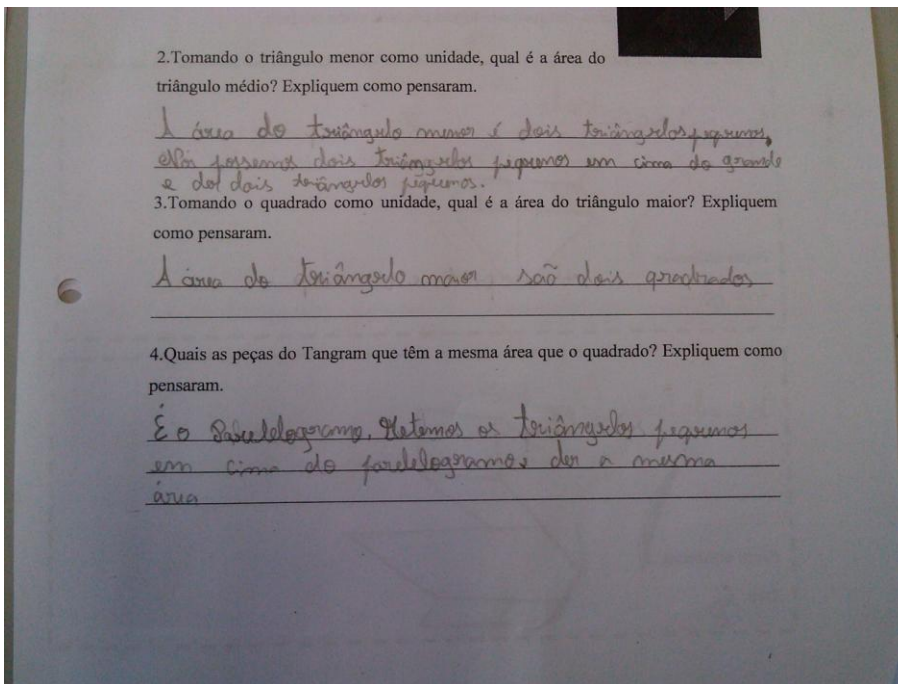 2.Tomando o triângulo menor como unidade, qual é a área do
triângulo médio? Expliquem como pensaram.
A área do triângulo menor é dois triângulos pequenos,
Nós possemos dois triângulos piquenos em cima do grande
e deu dois triângulos piquenos.
3.Tomando o quadrado como unidade, qual é a área do triângulo maior? Expliquem
como pensaram.
A área do triângulo maior são dois quadrados
4.Quais as peças do Tangram que têm a mesma área que o quadrado? Expliquem como
pensaram.
É o Paralelogramo. Metemos os triângulos pequenos
em cima do paralelogramo, deu a mesma
área